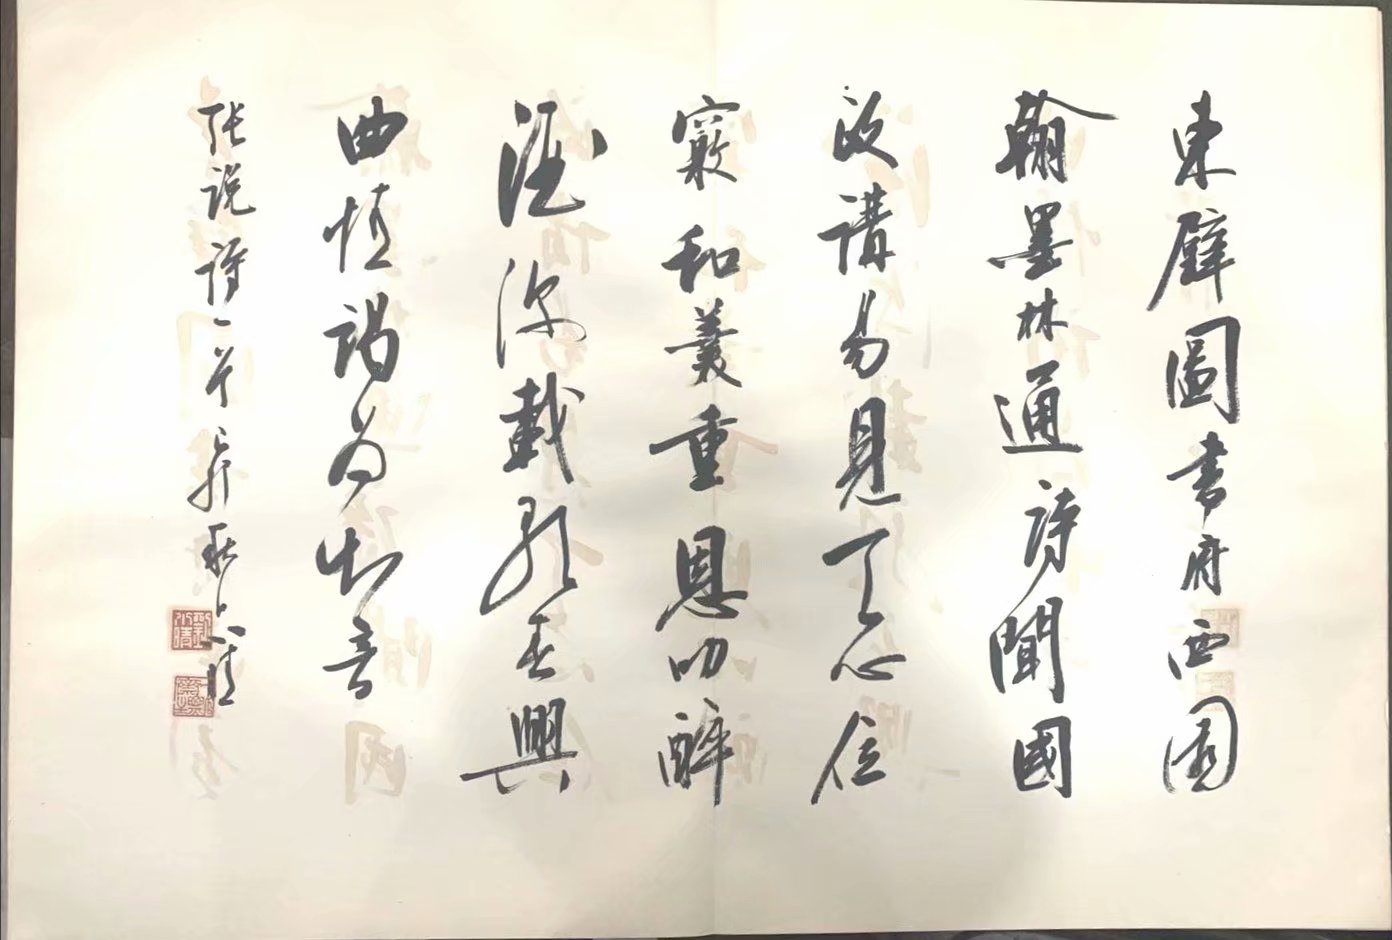 東壁圖書府西園
翰墨林通詩聞國
政講易見天心位
竊和羹重恩叨醉
酒深載歌春興
曲情竭為知音
张说詩一首 秋